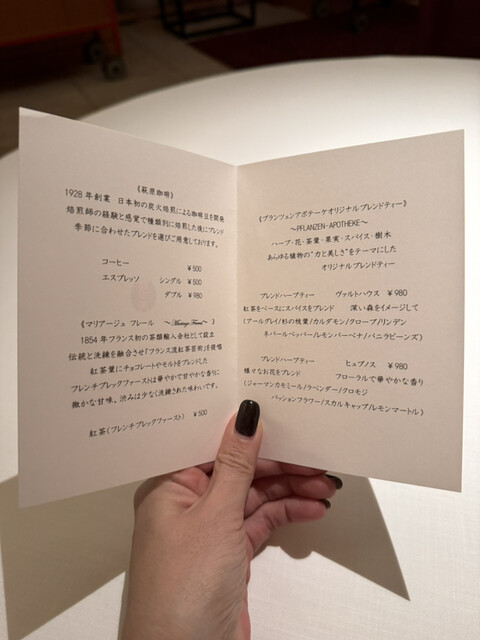 《萩原珈琲》
1928年創業　日本初の炭火焙煎による珈琲豆を開発
焙煎師の経験と感覚で種類別に焙煎した後にブレンド
季節に合わせたブレンドを選びご用意しております。
コーヒー　¥500
エスプレッソ　シングル　¥500
ダブル　¥980
《マリアージュ フレール　～Mariage Frères～　》
1854年フランス初の茶類輸入会社として設立
伝統と洗練を融合させ「フランス流紅茶芸術」を提唱
紅茶葉にチョコレートやモルトをブレンドした
フレンチブレックファーストは華やかで甘やかな香りに
微かな甘味、渋みは少なく洗練された味わいです。
紅茶(フレンチブレックファースト)　¥500
《プランツェンアポテーケオリジナルブレンドティー》
～PFLANZEN-APOTHEKE～
ハーブ・花・茶葉・果実・スパイス・樹木
あらゆる植物の"力と美しさ"をテーマにした
オリジナルブレンドティー
ブレンドハーブティー　ヴァルトハウス　¥980
紅茶をベースにスパイスをブレンド　深い森をイメージして
(アールグレイ/杉の枝葉/カルダモン/クローブ/リンデン
ネパールペッパー/レモンバーベナ/バニラビーンズ)
ブレンドハーブティー　ヒュプノス　¥980
様々なお花をブレンド　フローラルで華やかな香り
(ジャーマンカモミール/ラベンダー/クロモジ
パッションフラワー/スカルキャップ/レモンマートル)